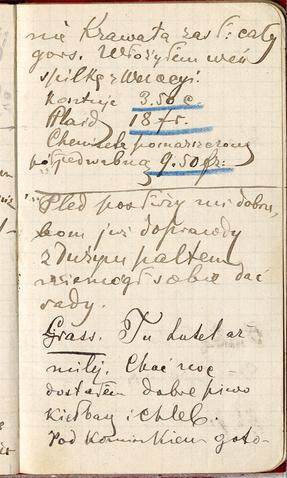 nie Krawata zasł: cały
gors. Włożyłem weń
spilkę z Wenecyi.
Kosztuje 3.50 c.
Plaid 18 fr.
Chemiseta pomarszczona
półjedwabna 9.50 fr:
Pled posłuży mi dobrze,
bom już doprawdy
z Dużym paltem
niemogł sobie dać
rady.
Grass. Tu hotel
milej. Choć noc
dostałem dobre piwo
Kiełbasy i chleb.
Pod Kominkiem goto-